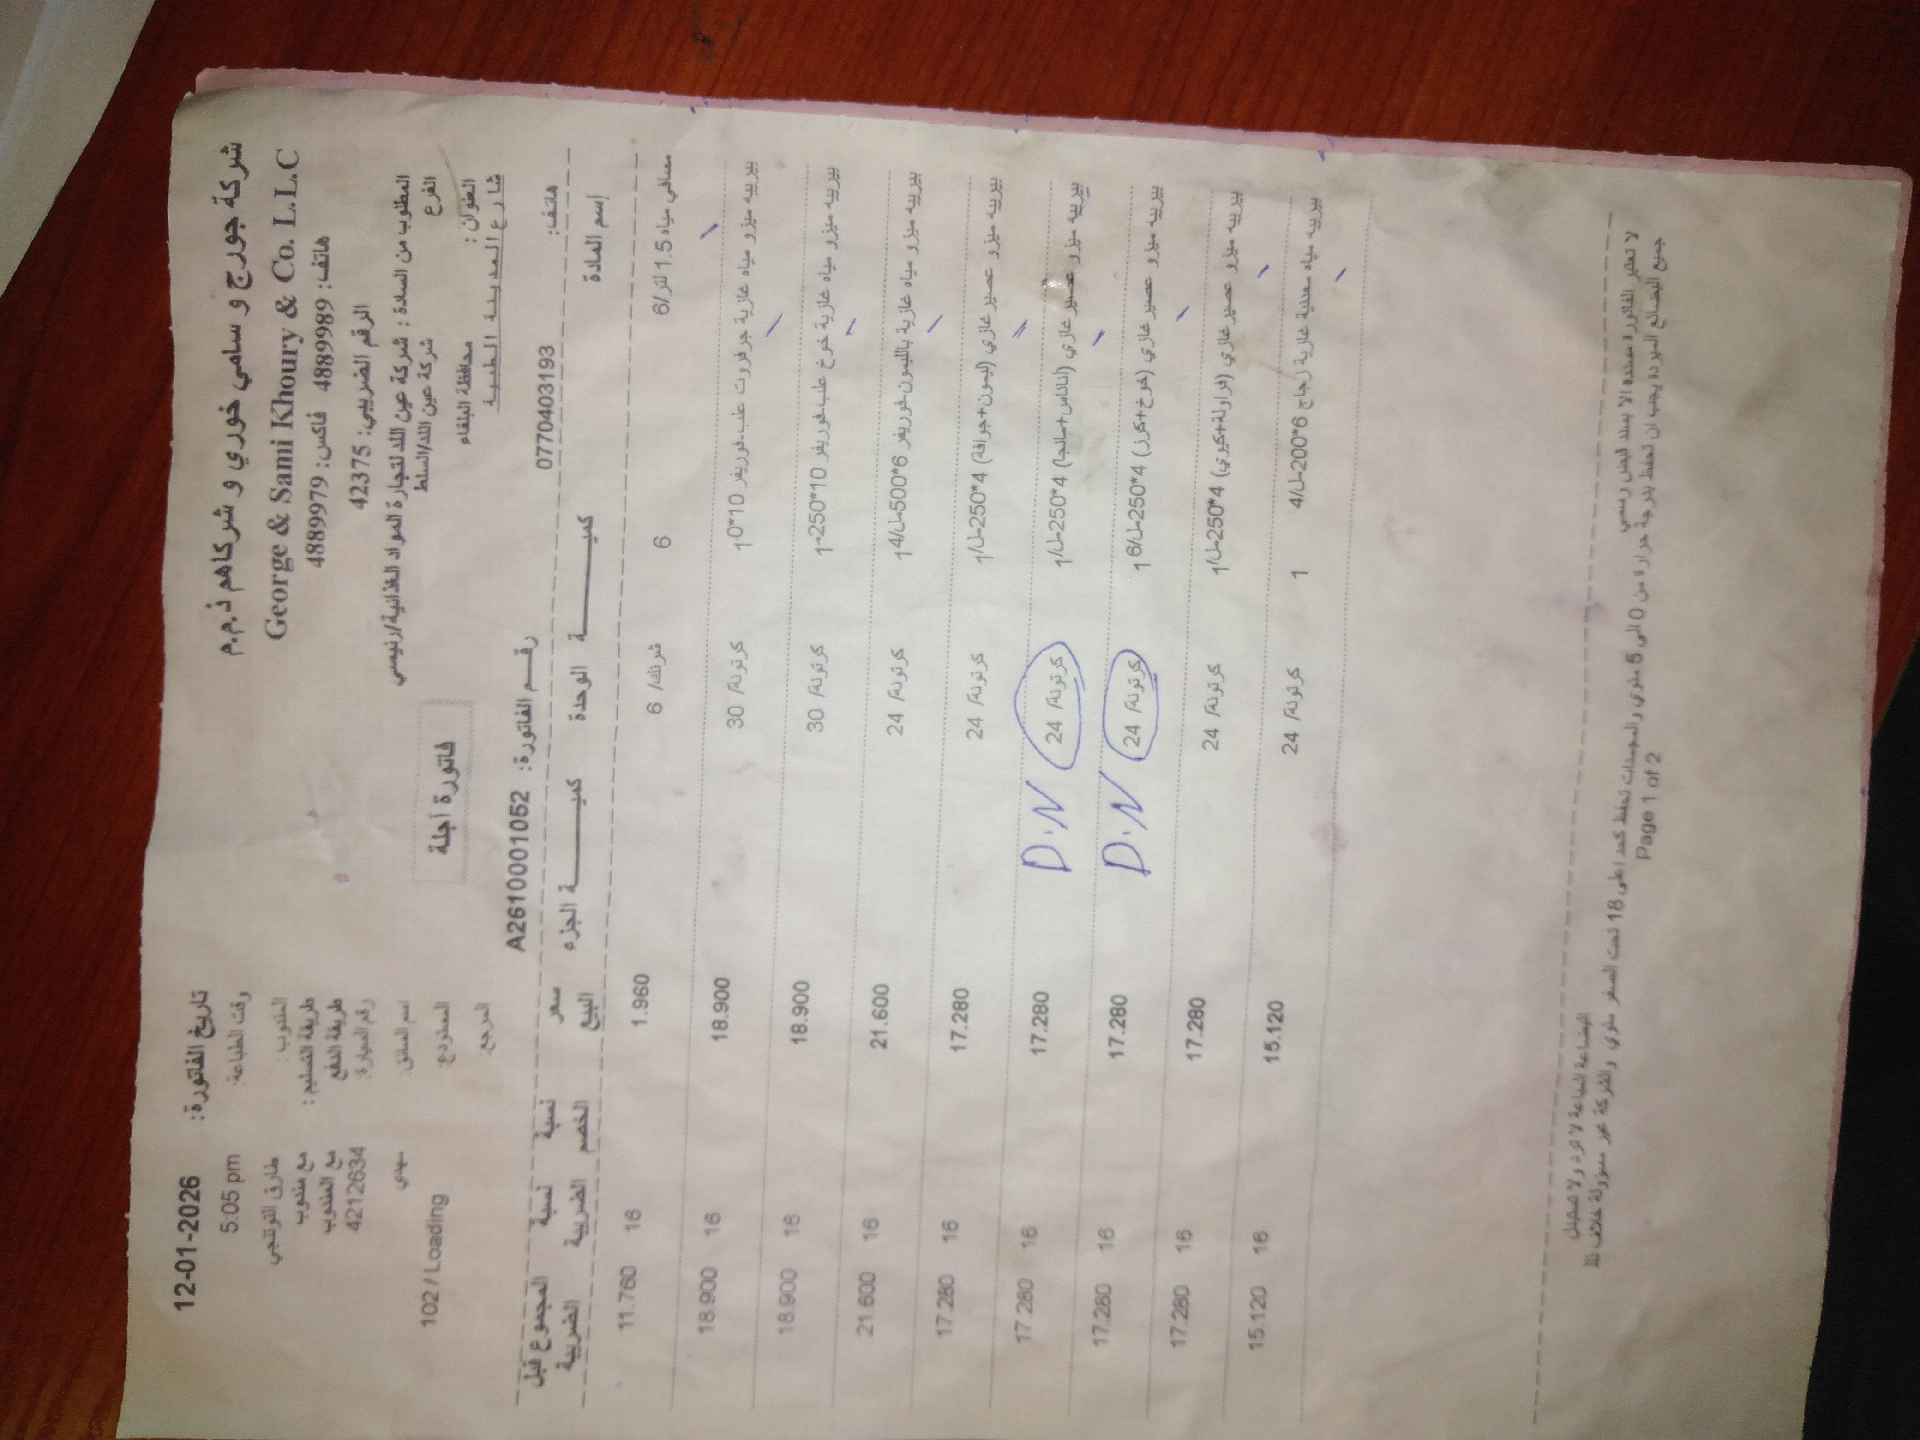 شركة جورج و سامي خوري و شركاهم ذ.م.م
George & Sami Khoury & Co. L.L.C
هاتف: 4889989 فاكس: 4889979
الرقم الضريبي: 42375
المطلوب من السادة : شركة عين اللد لتجارة المواد الغذائية/رئيسي
الفرع شركة عين اللد/السلط
العنوان : محافظة البلقاء
شارع المدينة الطبية
هاتف: 0770403193
تاريخ الفاتورة: 12-01-2026
وقت الطباعة: 5:05 pm
المندوب : طارق التوتنجي
طريقة التسليم : مع مندوب
طريقة الدفع مع المندوب
رقم السيارة: 4212634
اسم السائق:
المستودع: 102 / Loading
المرجع:
فاتورة آجلة
رقم الفاتورة: A2610001052
إسم المادة كميـــــة الوحدة كميـــــة الجزء سعر البيع نسبة الخصم نسبة الضريبة المجموع قبل الضريبة
مسافي مياه 1.5 لتر/6 6 شرنك/ 6 1.960 16 11.760
بيرييه ميزو مياه غازية جرفروت علب-فوريفر 10*10 كرتونة/ 30 18.900 16 18.900
بيرييه ميزو مياه غازية خوخ علب-فوريفر 10*250-1 كرتونة/ 30 18.900 16 18.900
بيرييه ميزو مياه غازية بالليمون-فوريفر 6*500-مل/4 1 كرتونة/ 24 21.600 16 21.600
بيرييه ميزو عصير غازي (ليمون+جوافة) 4*250-مل/1 كرتونة/ 24 17.280 16 17.280
بيرييه ميزو عصير غازي (اناناس+مانجا) 4*250-مل/1 كرتونة/ 24 D.N 17.280 16 17.280
بيرييه ميزو عصير غازي (خوخ+كرز) 4*250-مل/6 1 كرتونة/ 24 D.N 17.280 16 17.280
بيرييه ميزو عصير غازي (فراولة+كيوي) 4*250-مل/1 كرتونة/ 24 17.280 16 17.280
بيرييه مياه معدنية غازية زجاج 6*200-مل/4 1 كرتونة/ 24 15.120 16 15.120
لا تعتبر الفاتورة مسددة الا بسند قبض رسمي البضاعة المباعة لا ترد ولا تستبدل
جميع البضائع المبردة يجب ان تحفظ بدرجة حرارة من 0 الى 5 مئوي والمجمدات تحفظ كحد اعلى 18 تحت الصفر مئوي والشركة غير مسؤولة خلاف ذلك
Page 1 of 2